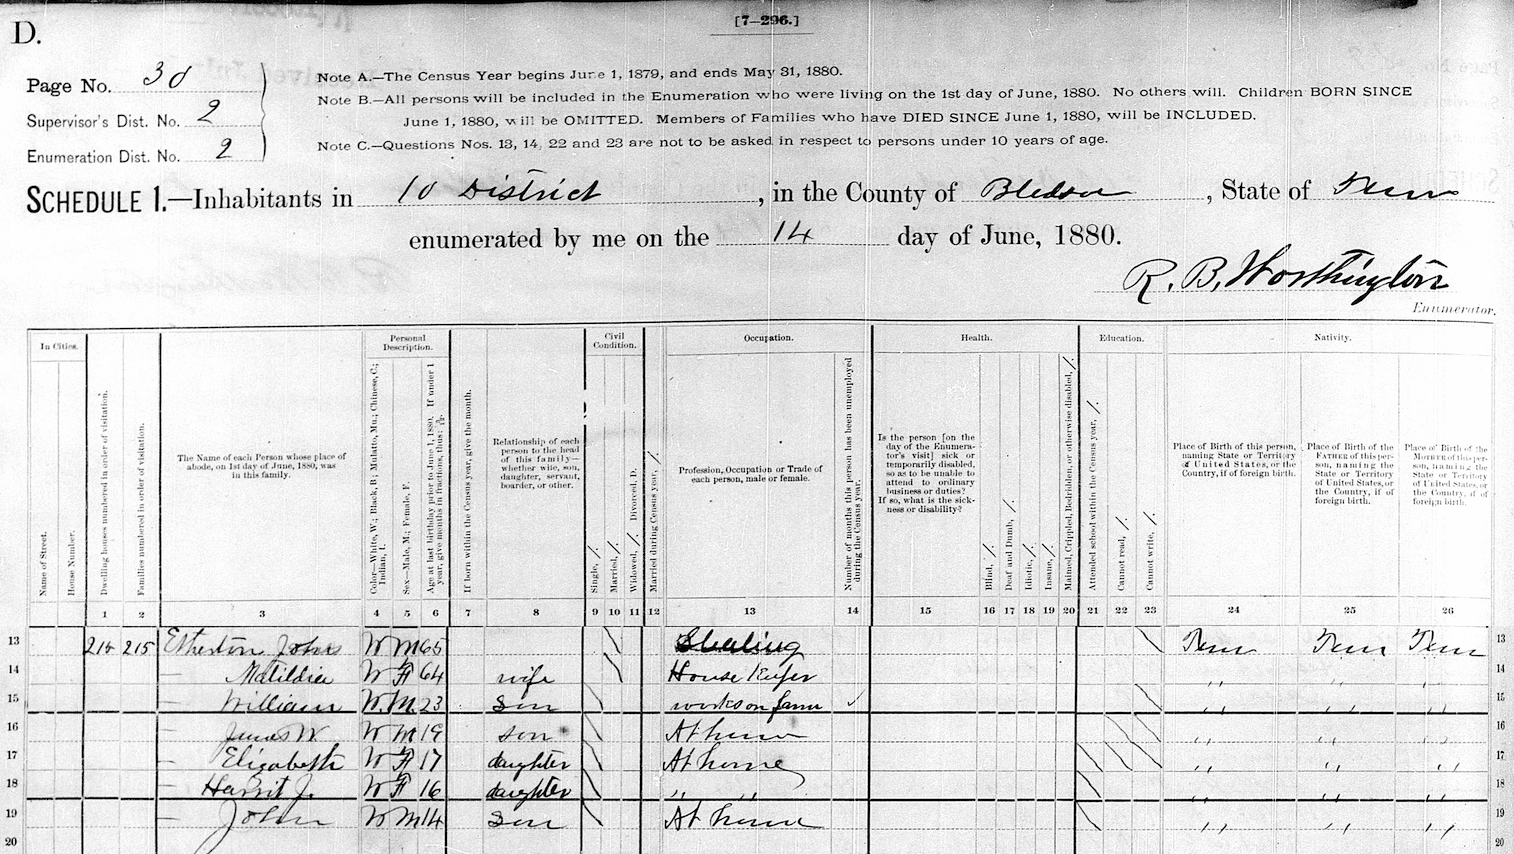 [7—296.]
D.
Page No. 30
Supervisor's Dist. No. 2
Enumeration Dist. No. 2
Note A.—The Census Year begins June 1, 1879, and ends May 31, 1880.
Note B.—All persons will be included in the Enumeration who were living on the 1st day of June, 1880. No others will. Children BORN SINCE
June 1, 1880, will be OMITTED. Members of Families who have DIED SINCE June 1, 1880, will be INCLUDED.
Note C.—Questions Nos. 13, 14, 22 and 23 are not to be asked in respect to persons under 10 years of age.
SCHEDULE 1.—Inhabitants in 10 District, in the County of Bledsoe, State of Tenn
enumerated by me on the 14 day of June, 1880.
R. B. Worthington
Enumerator.
In Cities. Personal Description. Civil Condition. Occupation. Health. Education. Nativity.
Name of Street.
House Number.
Dwelling houses numbered in order of visitation.
Families numbered in order of visitation.
The Name of each Person whose place of
abode, on 1st day of June, 1880, was
in this family.
Color—White, W; Black, B; Mulatto, Mu; Chinese, C;
Indian, I.
Sex—Male, M; Female, F.
Age at last birthday prior to June 1, 1880. If under 1
year, give months in fractions, thus: 3/12.
If born within the Census year, give the month.
Relationship of each
person to the head
of this family—
whether wife, son,
daughter, servant,
boarder, or other.
Single, /.
Married, /.
Widowed, /. Divorced, D.
Married during Census year, /.
Profession, Occupation or Trade of
each person, male or female.
Number of months this person has been unemployed
during the Census year.
Is the person [on the
day of the Enumera-
tor's visit] sick or
temporarily disabled,
so as to be unable to
attend to ordinary
business or duties?
If so, what is the sick-
ness or disability?
Blind, /.
Deaf and Dumb, /.
Idiotic, /.
Insane, /.
Maimed, Crippled, Bedridden, or otherwise disabled, /.
Attended school within the Census year, /.
Cannot read, /.
Cannot write, /.
Place of Birth of this person,
naming State or Territory
of United States, or the
Country, if of foreign birth.
Place of Birth of the
FATHER of this per-
son, naming the
State or Territory
of United States, or
the Country, if of
foreign birth.
Place of Birth of the
MOTHER of this per-
son, naming the
State or Territory
of United States, or
the Country, if of
foreign birth.
1 2 3 4 5 6 7 8 9 10 11 12 13 14 15 16 17 18 19 20 21 22 23 24 25 26
13 215 215 Etherton John W M 65 / / Tenn Tenn Tenn 13
14 — Matildia W F 64 wife / House Keeper " " " 14
15 — William W. M. 23 Son / works on farm ✓ / " " " 15
16 — James W W M 19 son / At home / / " " " 16
17 — Elizabeth W F 17 daughter / At home / / / " " " 17
18 — Harrit J. W F 16 daughter / " " / " " " 18
19 — John W M 14 Son / At home / " " " 19
20 20